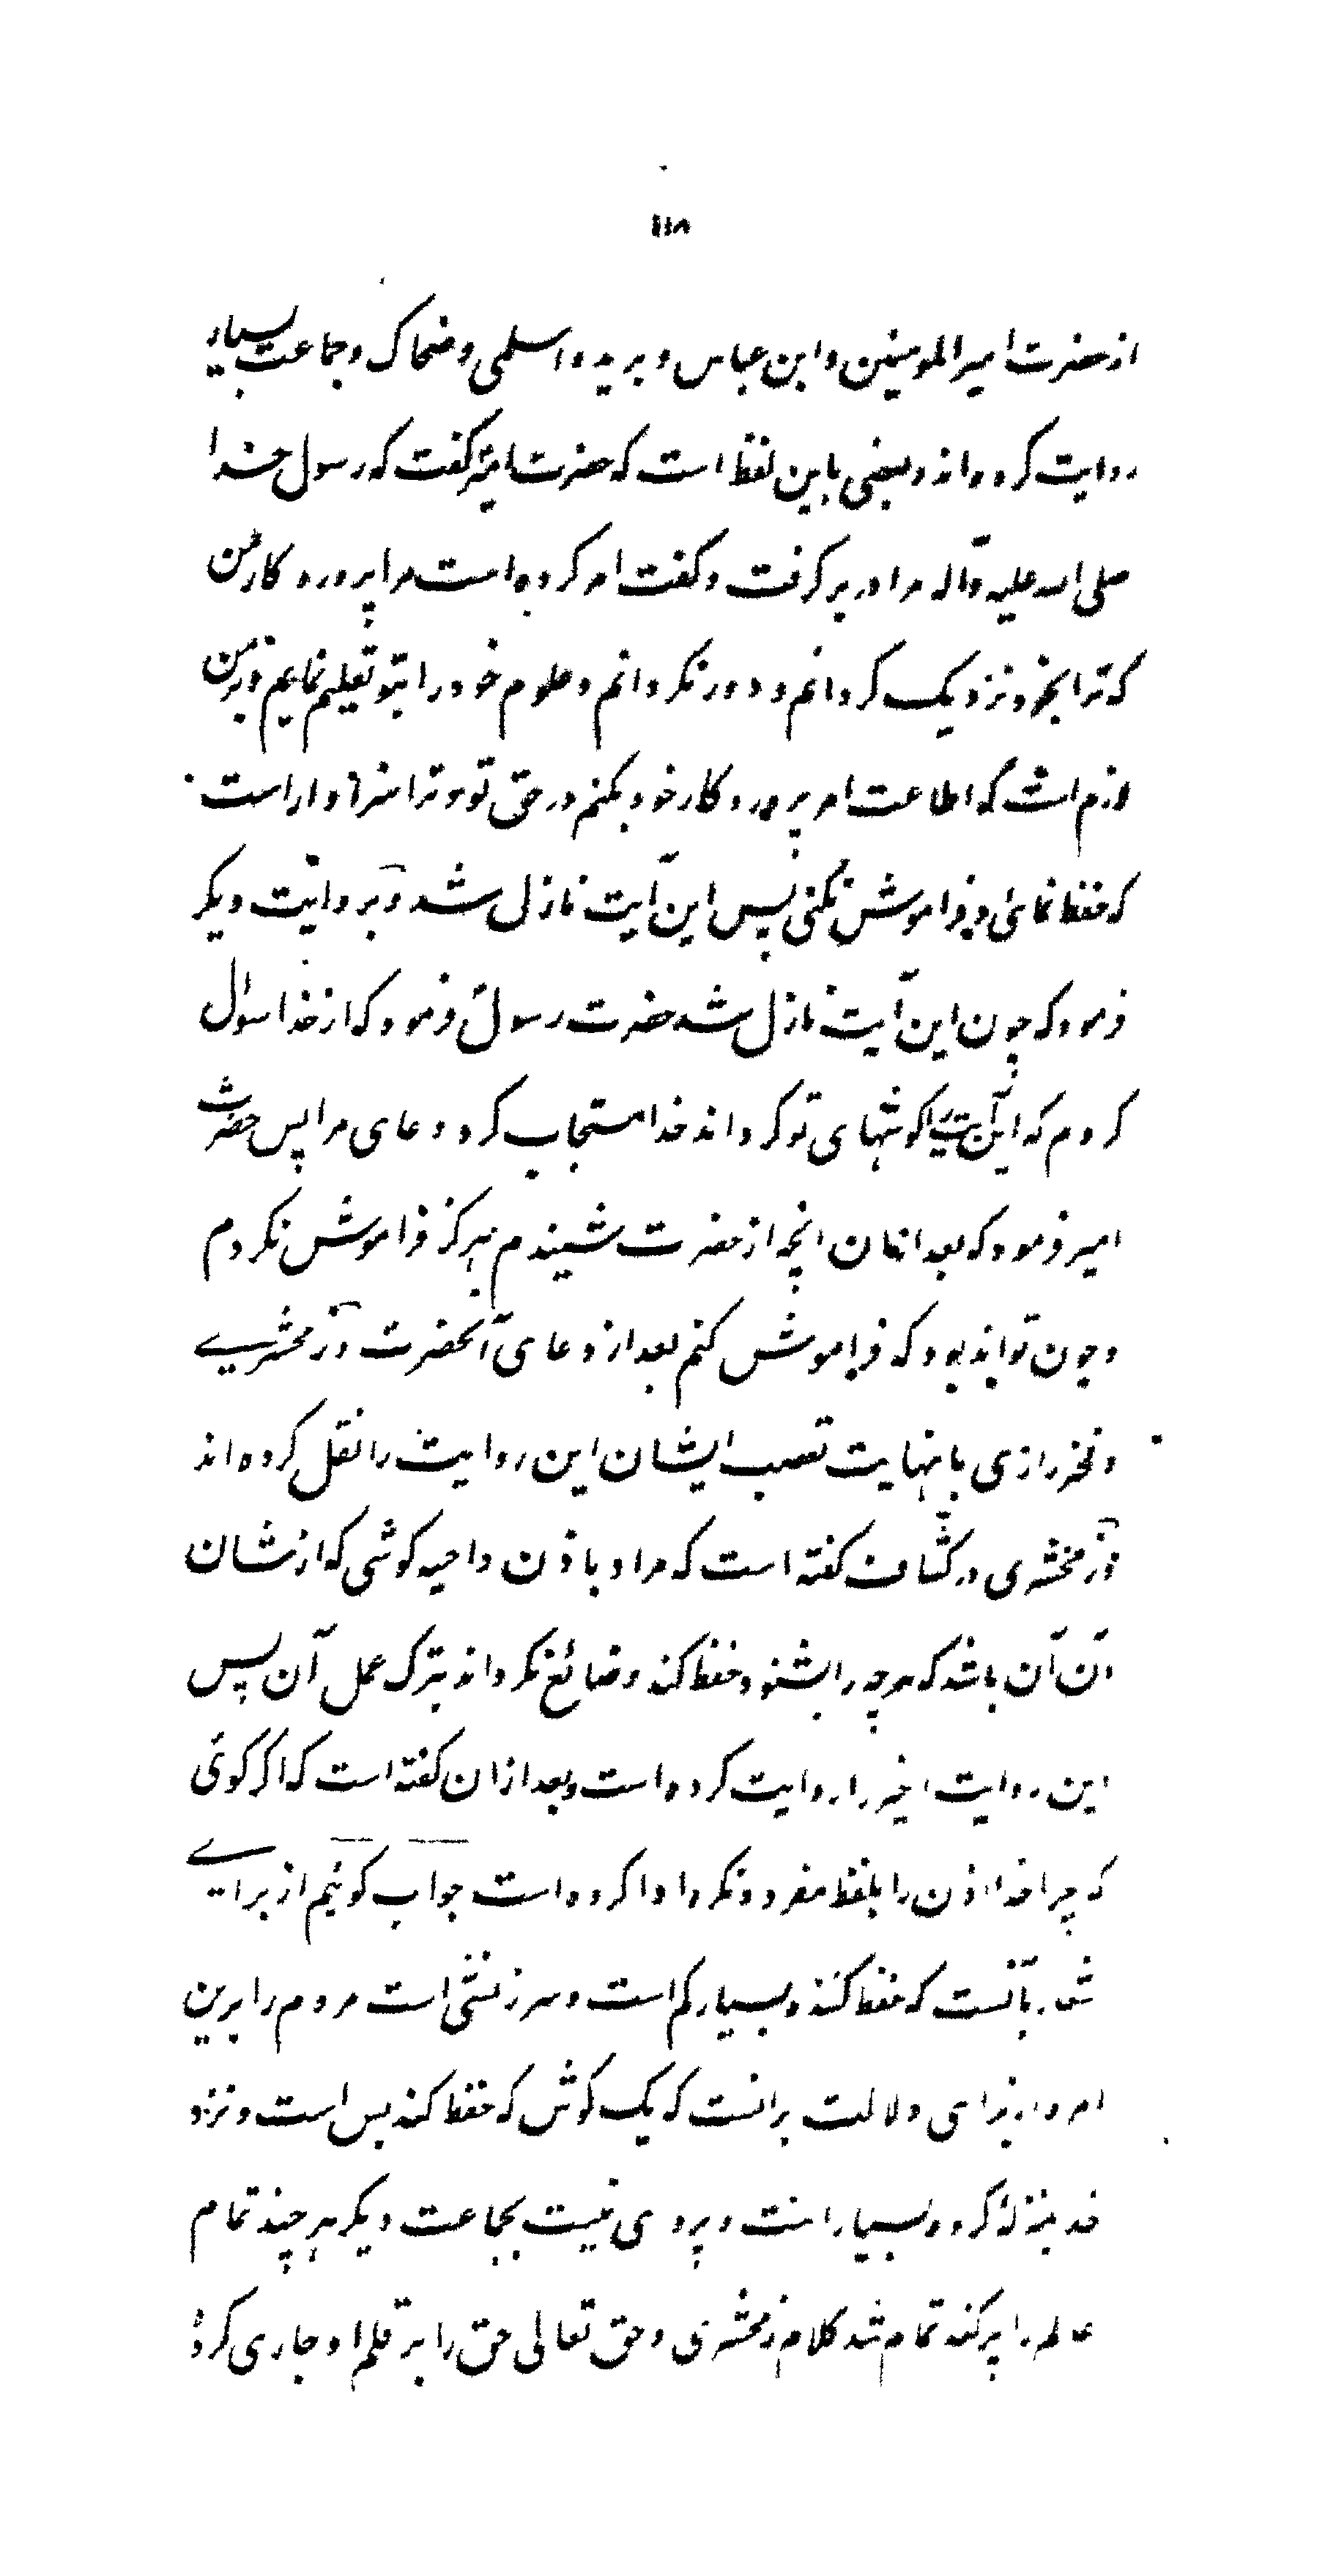 ۱۱۸
از حضرت امیر المومنین و ابن عباس و بریده و اسلمی و ضحاک و جماعت بسیار
روایت کرده اند و بعضی باین لفظ است که حضرت امیر گفت که رسول خدا
صلی الله علیه و آله مرا در بر گرفت و گفت امر کرده است مرا پروردکار من
که ترا بخود نزدیک گردانم و دور نگردانم و علوم خود را بتو تعلیم نمایم و بر من
لازم است که اطاعت امر پروردکار خود بکنم در حق تو و ترا سزاوار است
که حفظ نمائ و فراموش نکنی پس این آیت نازل شد و بروایت دیکر
فرمود که چون این آیت نازل شد حضرت رسول فرمود که از خدا سوال
کردم که این آیت را کوشهای تو کرداند خدا مستجاب کرد دعای مرا پس حضرت
امیر فرمود که بعد ازان انچه از حضرت شنیدم هرکز فراموش نکردم
و چون تواند بود که فراموش کنم بعد از دعای آنحضرت و زمخشری
و فخر رازی با نهایت تعصب ایشان این روایت را نقل کرده اند
و زمخشری در کشاف کفته است که مراد باذن واعیه کوشی که از شان
آن آن باشد که هرچه را بشنود حفظ کند و ضائع نکرداند بترک عمل آن پس
این روایت اخیر را روایت کرده است و بعد ازان کفته است که اکر کوئ
که چرا خدا اذن را بلفظ مفرد و نکره ادا کرده است جواب کوئیم از برای
شعار بآنست که حفظ کننده بسیار کم است و سرزنشی است مردم را برین
امر و از برای دلالت برانست که یک کوش که حفظ کند بس است و نزد
خدا بمنزله کروه بسیار است و پروی نیست بجماعت دیکر هر چند تمام
عالم را پر کنند تمام شد کلام زمخشری و حق تعالی حق را بر قلم او جاری کرده